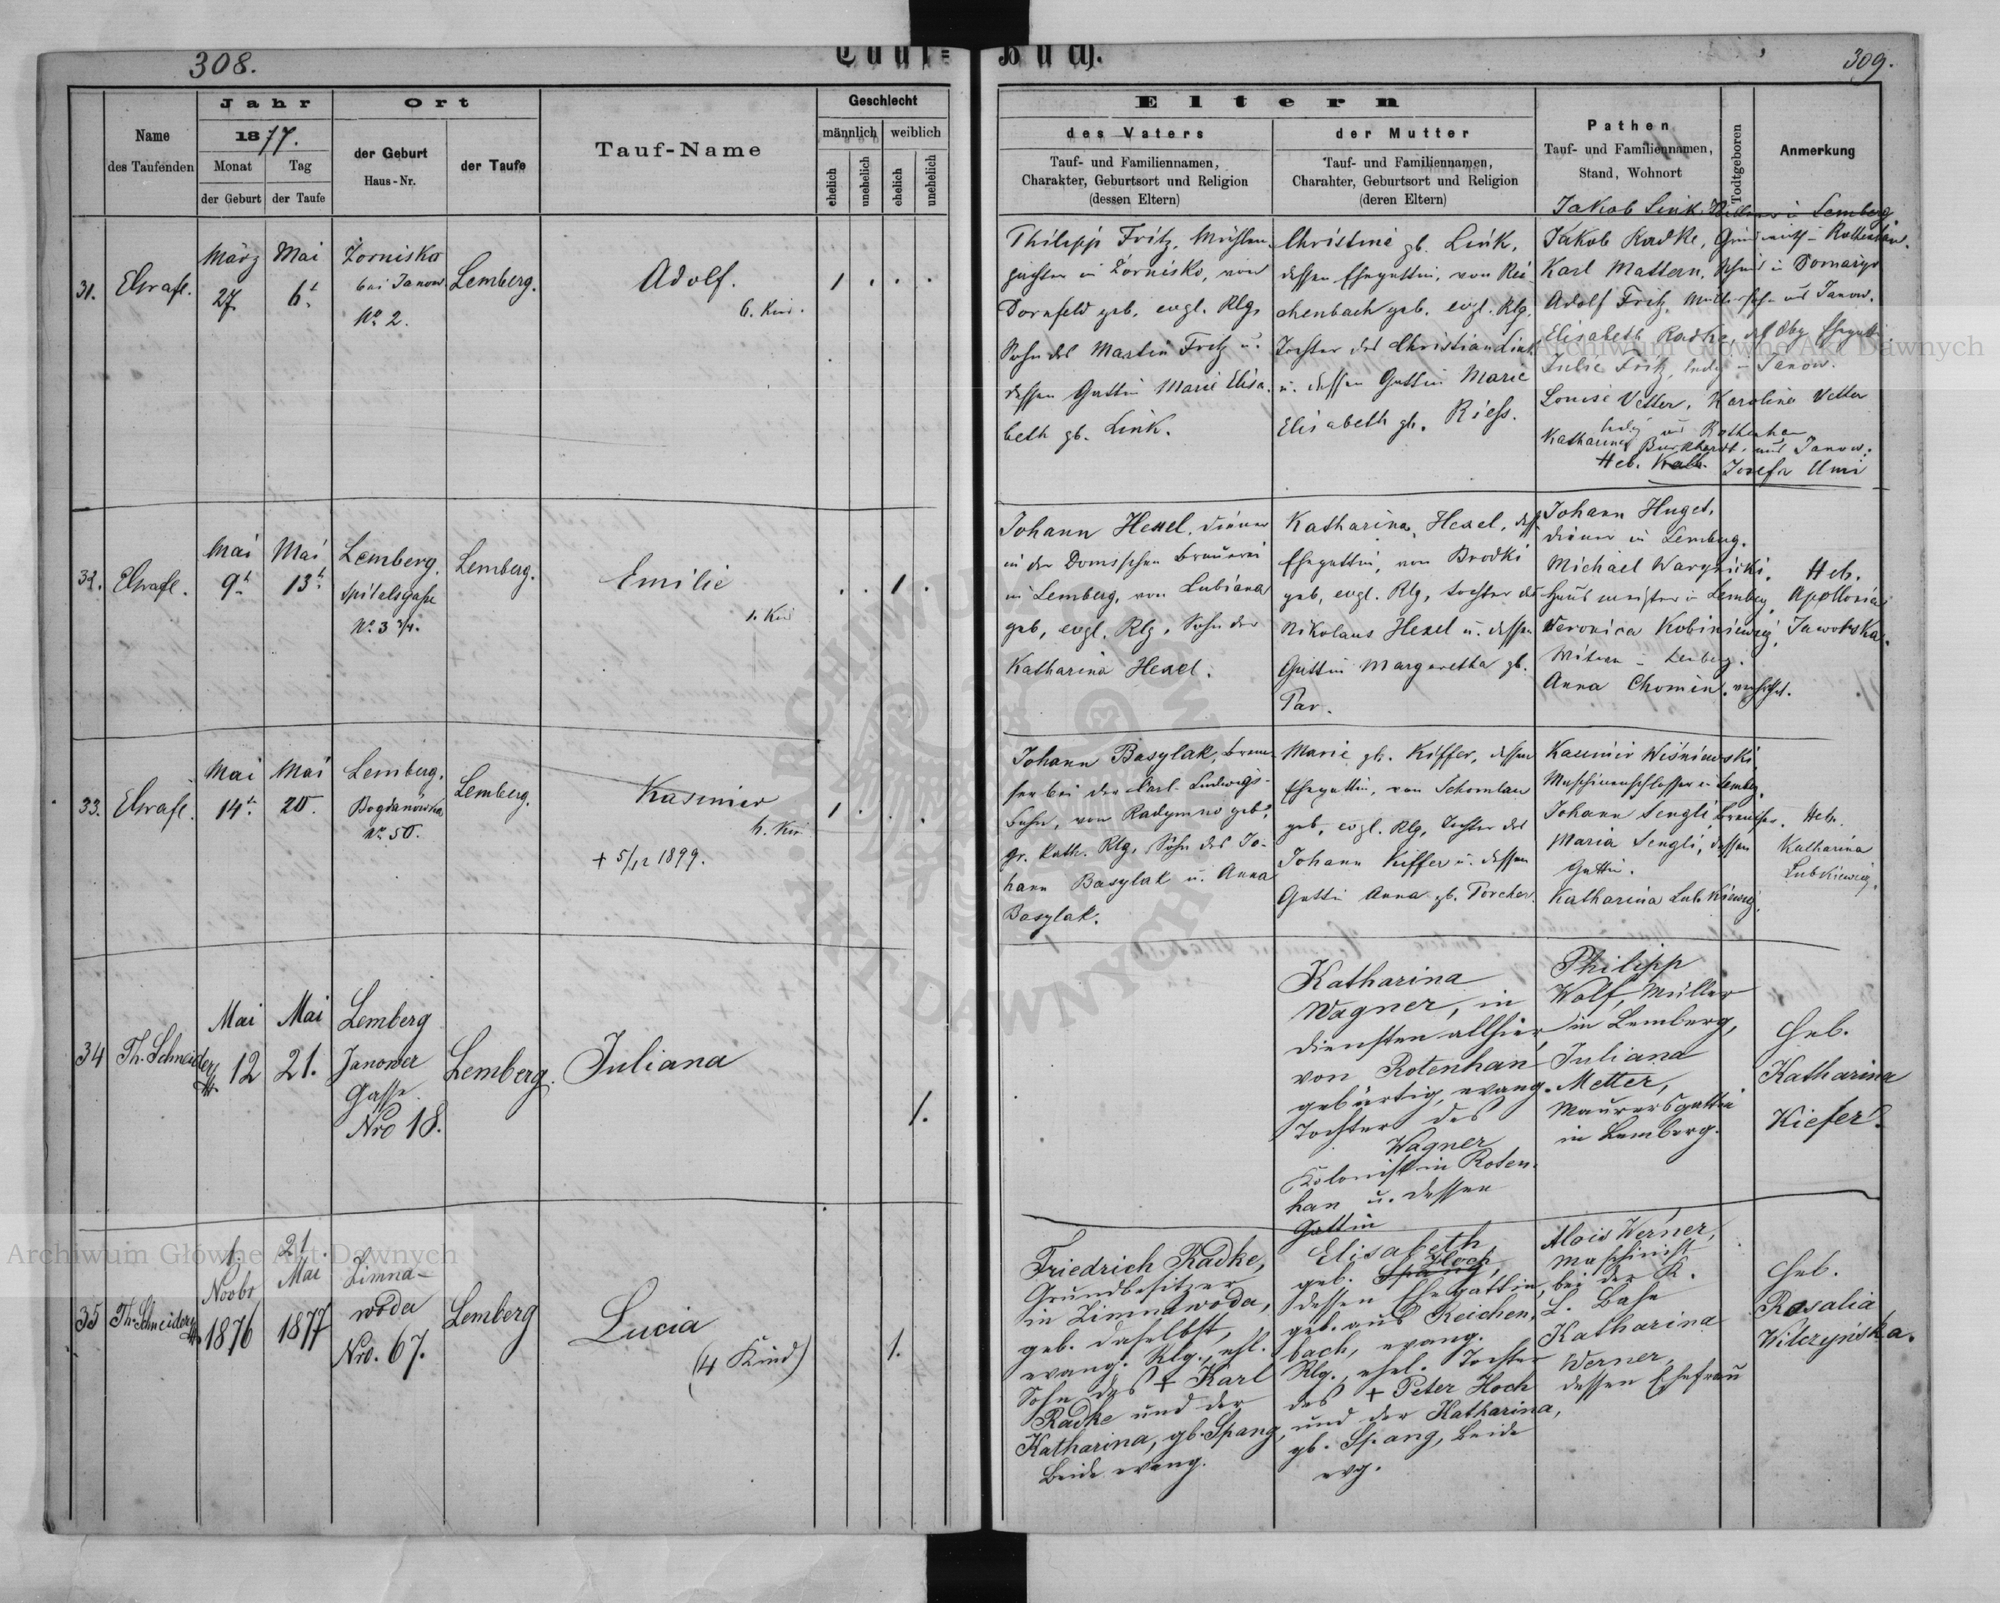 308.
Tauf=
Buch.
309.
Jahr
1877.
Monat
der Geburt
Tag
der Taufe
Name
des Taufenden
Ort
der Geburt
Haus-Nr.
der Taufe
Tauf-Name
Geschlecht
männlich
weiblich
ehelich
unehelich
ehelich
unehelich
Eltern
des Vaters
Tauf- und Familiennamen,
Charakter, Geburtsort und Religion
(dessen Eltern)
der Mutter
Tauf- und Familiennamen,
Charakter, Geburtsort und Religion
(deren Eltern)
Pathen
Tauf- und Familiennamen,
Stand, Wohnort
Todtgeboren
Anmerkung
31.
März
27.
Mai
6t.
Zornisko
bei Janow
No 2.
Lemberg.
Adolf.
6. Kind.
1
Philipp Fritz, Mühlen-
in Zornisko, von
Dornfeld geb. evgl. Rlg,
Sohn des Martin Fritz u.
dessen Gattin Marie Elisa-
beth gb. Link.
Christine gb. Link,
dessen Ehegattin, von Rei-
chenbach geb. evgl. Rlg.
Tochter des Christian Link
u. dessen Gattin Marie
Elisabeth gb. Riess.
Jakob Link, Lemberg.
Jakob Radke,
Karl Mattern,
Adolf Fritz, Janow.
Elisabeth Radke, des Obg. Ehegattin
Julie Fritz, ledig in Janow.
Louise Vetter, Karoline Vetter
ledig aus Rottenhan
Katharina Burkhardt, aus Janow.
Heb. Josefa
32.
Mai
9t.
Mai
13t.
Lemberg.
Spitalsgasse
No 3 3/4.
Lemberg.
Emilie
1. Kind
1
Johann Hexel, Diener
in der Domsschen Brauerei
in Lemberg, von Lubiana
geb, evgl. Rlg, Sohn der
Katharina Hexel.
Katharina Hexel, dess
Ehegattin, von Brodki
geb, evgl. Rlg, Tochter des
Nikolaus Hexel u. dessen
Gattin Margaretha gb.
Par.
Johann Huget,
Diener in Lemberg.
Michael
Hausmeister in Lemberg,
Veronica
Witwe in Lemberg.
Anna Chomin, verehel.
Heb.
Apollonia
Jaworska.
33.
Mai
14t.
Mai
20.
Lemberg.
Bogdanówka
No 50.
Lemberg.
Kasimier
4. Kind
+ 5/12 1899.
1
Johann Basylak, Brem-
ser bei der Carl-Ludwigs-
bahn, von Radymno geb,
gr. kath. Rlg, Sohn des Jo-
hann Basylak u. Anna
Basylak.
Marie gb. Kiffer, dessen
Ehegattin, von Schomlau
geb, evgl. Rlg, Tochter des
Johann Kiffer u. dessen
Gattin Anna gb. Porcher.
Kasimir Wiśniewski,
Maschinenschlosser in Lemberg.
Johann Sengli, Bremser.
Maria Sengli, dessen
Gattin.
Katharina Lubkiewicz.
Heb.
Katharina
Lubkiewicz.
34
Th. Schneider
Mai
12
Mai
21.
Lemberg
Janower
Gasse
Nro 18.
Lemberg.
Juliana
1.
Katharina
Wagner, in
Diensten allhier
von Rotenhan
gebürtig, evang.
Tochter des
Wagner
Kolonist in Roten-
han u. dessen
Gattin
Philipp
Wolf, Müller
in Lemberg,
Juliana
Metter,
Maurersgattin
in Lemberg.
Heb.
Katharina
Kiefer.
35
Th. Schneider
1.
Novbr
1876
21.
Mai
1877
Zimna-
woda
Nro. 67.
Lemberg
Lucia
(4 Kind)
1.
Friedrich Radke,
Grundbesitzer
in Zimnawoda,
geb. daselbst,
evang. Rlg., ehl.
Sohn des + Karl
Radke und der
Katharina, gb. Spang,
beide evang.
Elisabeth
geb. Spang Hoch,
dessen Ehegattin,
geb. aus Reichen-
bach, evang.
Rlg., ehel. Tochter
des + Peter Hoch
und der Katharina,
gb. Spang, beide
evg.
Alois Werner,
Maschinist
bei der K.
L. Bahn
Katharina
Werner,
dessen Ehefrau
Heb.
Rosalia
Wilczyńska.
Archiwum Główne Akt Dawnych
Archiwum Główne Akt Dawnych